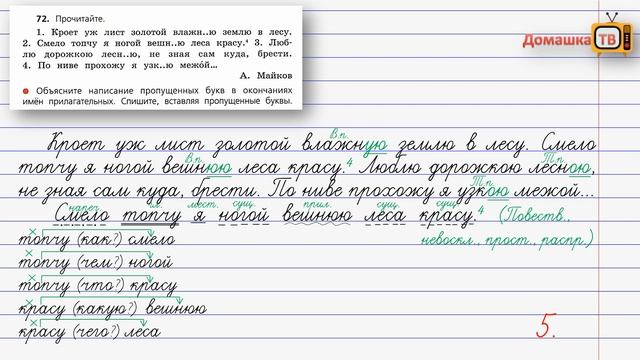 72. Прочитайте.
1. Кроет уж лист золотой влажн..ю землю в лесу.
2. Смело топчу я ногой вешн..ю леса красу.⁴ 3. Люб-
лю дорожкою лесн..ю, не зная сам куда, брести.
4. По ниве прохожу я узк..ю межо́й...
А. Майков
Объясните написание пропущенных букв в окончаниях
имён прилагательных. Спишите, вставляя пропущенные буквы.
Домашка ТВ
В.п.
Кроет уж лист золотой влажную землю в лесу. Смело
В.п. Т.п.
топчу я ногой вешнюю леса красу.⁴ Люблю дорожкою лесною,
Т.п.
не зная сам куда, брести. По ниве прохожу я узкою межой...
нареч. гл. мест. сущ. прил. сущ. сущ.
Смело топчу я ногой вешнюю леса красу.⁴ (Повеств.,
топчу (как?) смело невоскл., прост., распр.)
топчу (чем?) ногой
топчу (что?) красу
красу (какую?) вешнюю
красу (чего?) леса
5.